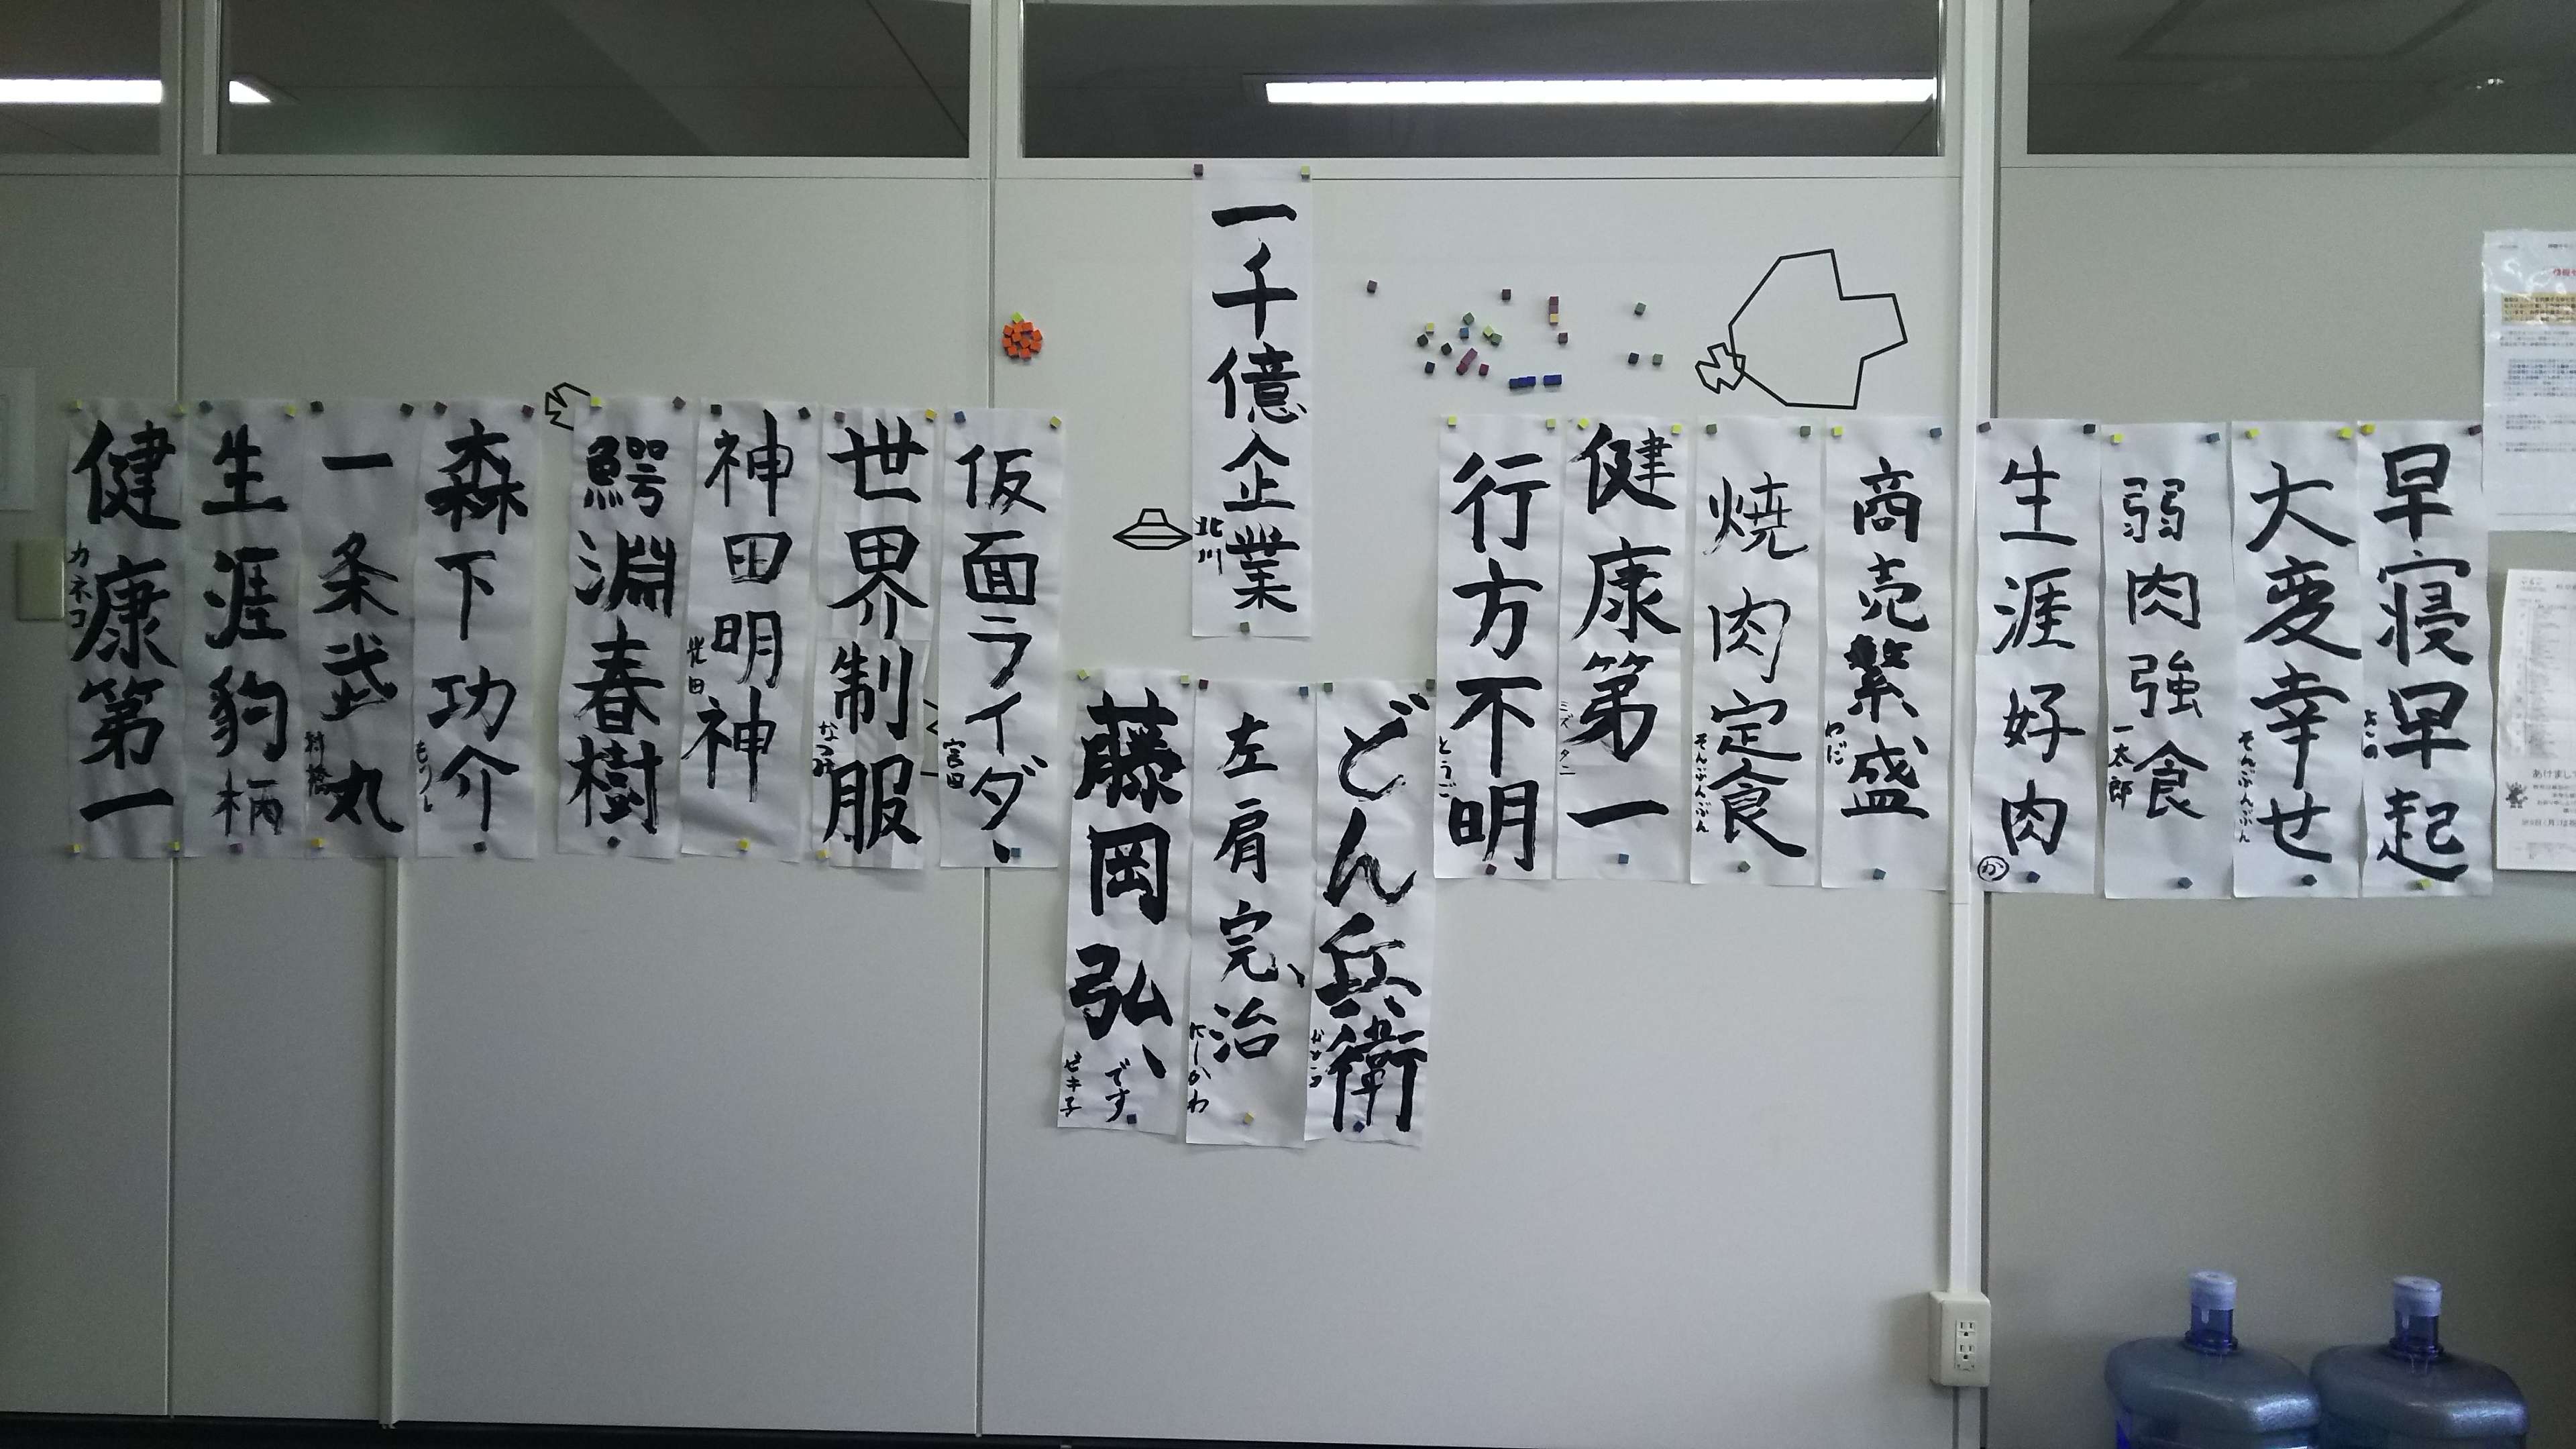 早寝早起
よこの
大変幸せ
そんぶんぶん
弱肉強食
一太郎
生涯好肉
か
商売繁盛
わだ
焼肉定食
そんぶんぶん
健康第一
ミズタニ
行方不明
とうご
一千億企業
北川
どん兵衛
左肩完治
にしかわ
藤岡弘、
です
ゼキ子
仮面ライダー
宮田
世界制服
神田明神
鰐淵春樹
森下功介
もりし
一条武丸
村橋
生涯豹柄
健康第一
カネコ
あけまして